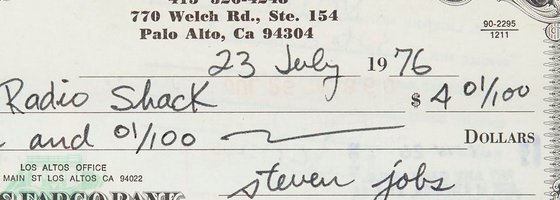 415-326-4248
770 Welch Rd., Ste. 154
Palo Alto, Ca 94304
90-2295
1211
23 July 1976
Radio Shack $ 4 01/100
and 01/100 DOLLARS
LOS ALTOS OFFICE
MAIN ST LOS ALTOS CA 94022
steven jobs
FARGO BANK